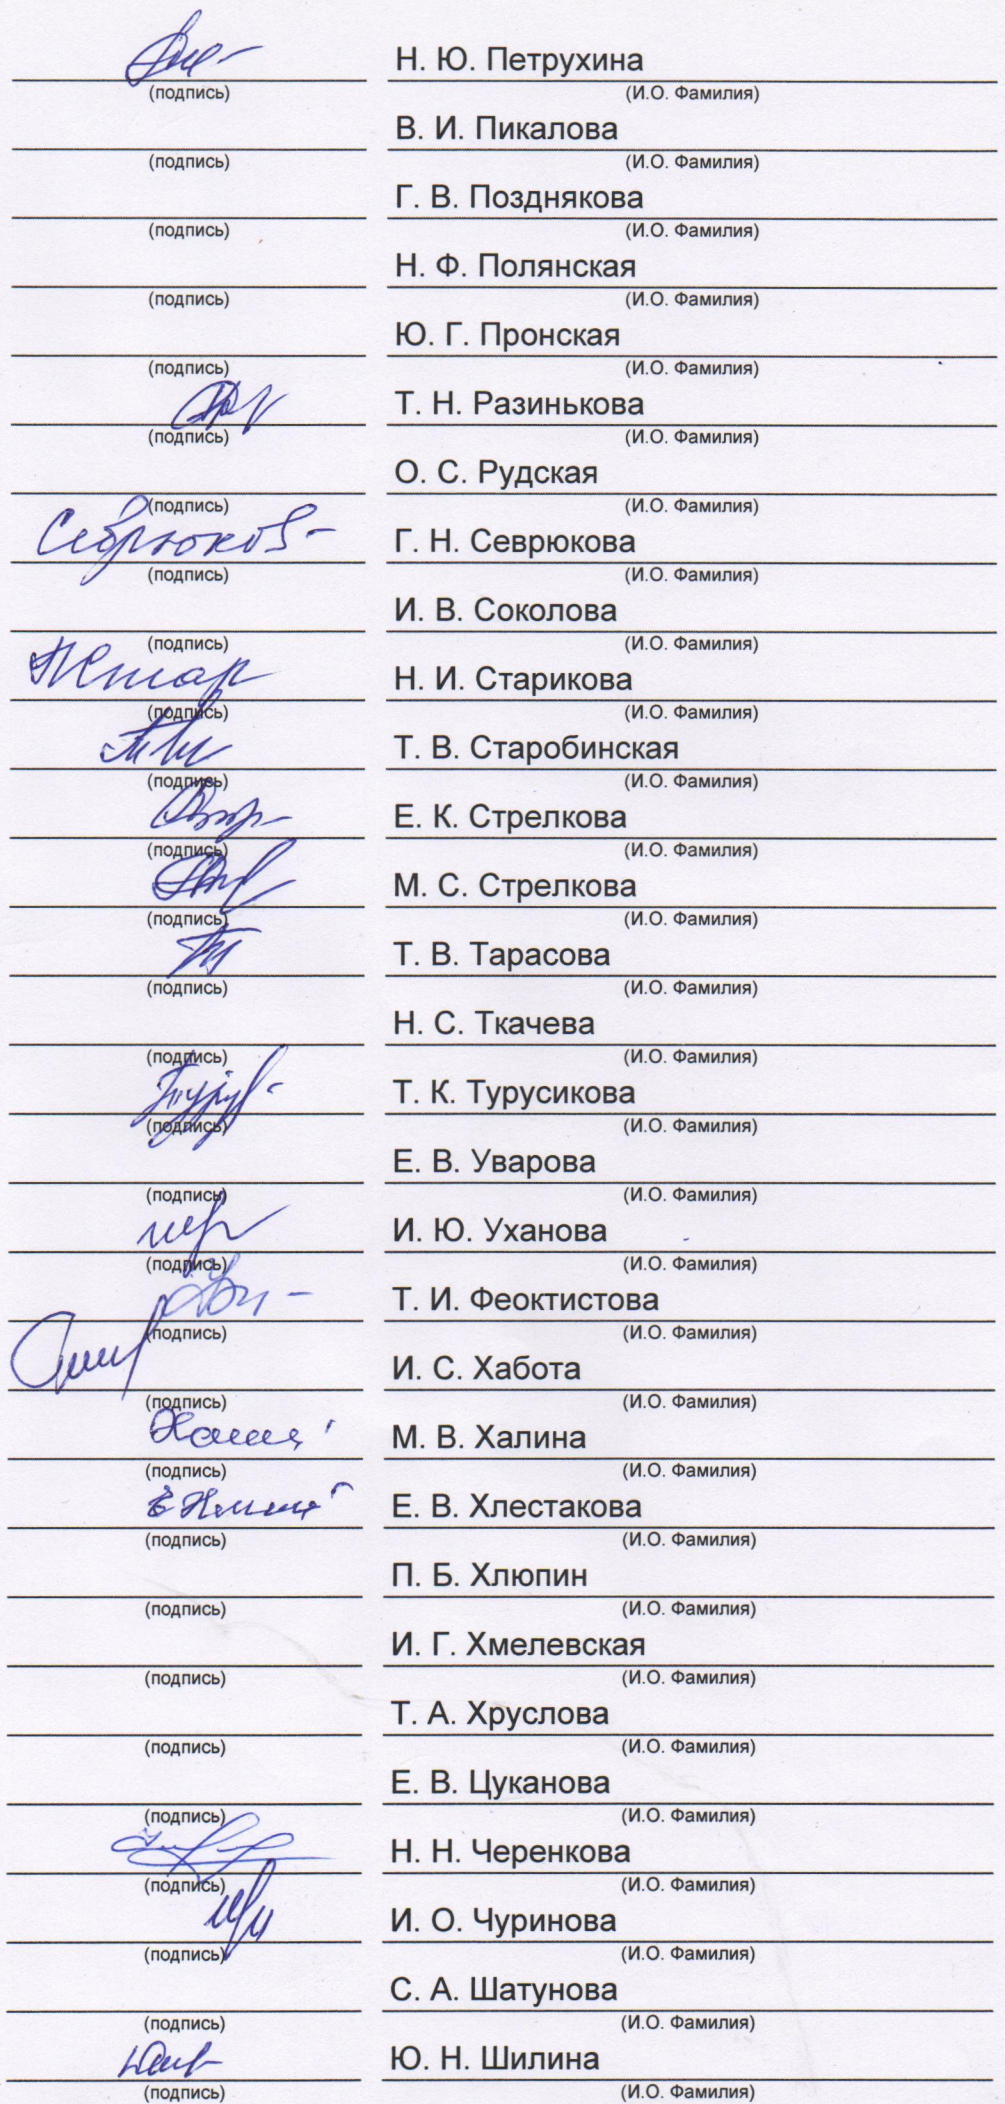 Н. Ю. Петрухина
(подпись) (И.О. Фамилия)
В. И. Пикалова
(подпись) (И.О. Фамилия)
Г. В. Позднякова
(подпись) (И.О. Фамилия)
Н. Ф. Полянская
(подпись) (И.О. Фамилия)
Ю. Г. Пронская
(подпись) (И.О. Фамилия)
Т. Н. Разинькова
(подпись) (И.О. Фамилия)
О. С. Рудская
(подпись) (И.О. Фамилия)
Г. Н. Севрюкова
(подпись) (И.О. Фамилия)
И. В. Соколова
(подпись) (И.О. Фамилия)
Н. И. Старикова
(подпись) (И.О. Фамилия)
Т. В. Старобинская
(подпись) (И.О. Фамилия)
Е. К. Стрелкова
(подпись) (И.О. Фамилия)
М. С. Стрелкова
(подпись) (И.О. Фамилия)
Т. В. Тарасова
(подпись) (И.О. Фамилия)
Н. С. Ткачева
(подпись) (И.О. Фамилия)
Т. К. Турусикова
(подпись) (И.О. Фамилия)
Е. В. Уварова
(подпись) (И.О. Фамилия)
И. Ю. Уханова
(подпись) (И.О. Фамилия)
Т. И. Феоктистова
(подпись) (И.О. Фамилия)
И. С. Хабота
(подпись) (И.О. Фамилия)
М. В. Халина
(подпись) (И.О. Фамилия)
Е. В. Хлестакова
(подпись) (И.О. Фамилия)
П. Б. Хлюпин
(подпись) (И.О. Фамилия)
И. Г. Хмелевская
(подпись) (И.О. Фамилия)
Т. А. Хруслова
(подпись) (И.О. Фамилия)
Е. В. Цуканова
(подпись) (И.О. Фамилия)
Н. Н. Черенкова
(подпись) (И.О. Фамилия)
И. О. Чуринова
(подпись) (И.О. Фамилия)
С. А. Шатунова
(подпись) (И.О. Фамилия)
Ю. Н. Шилина
(подпись) (И.О. Фамилия)